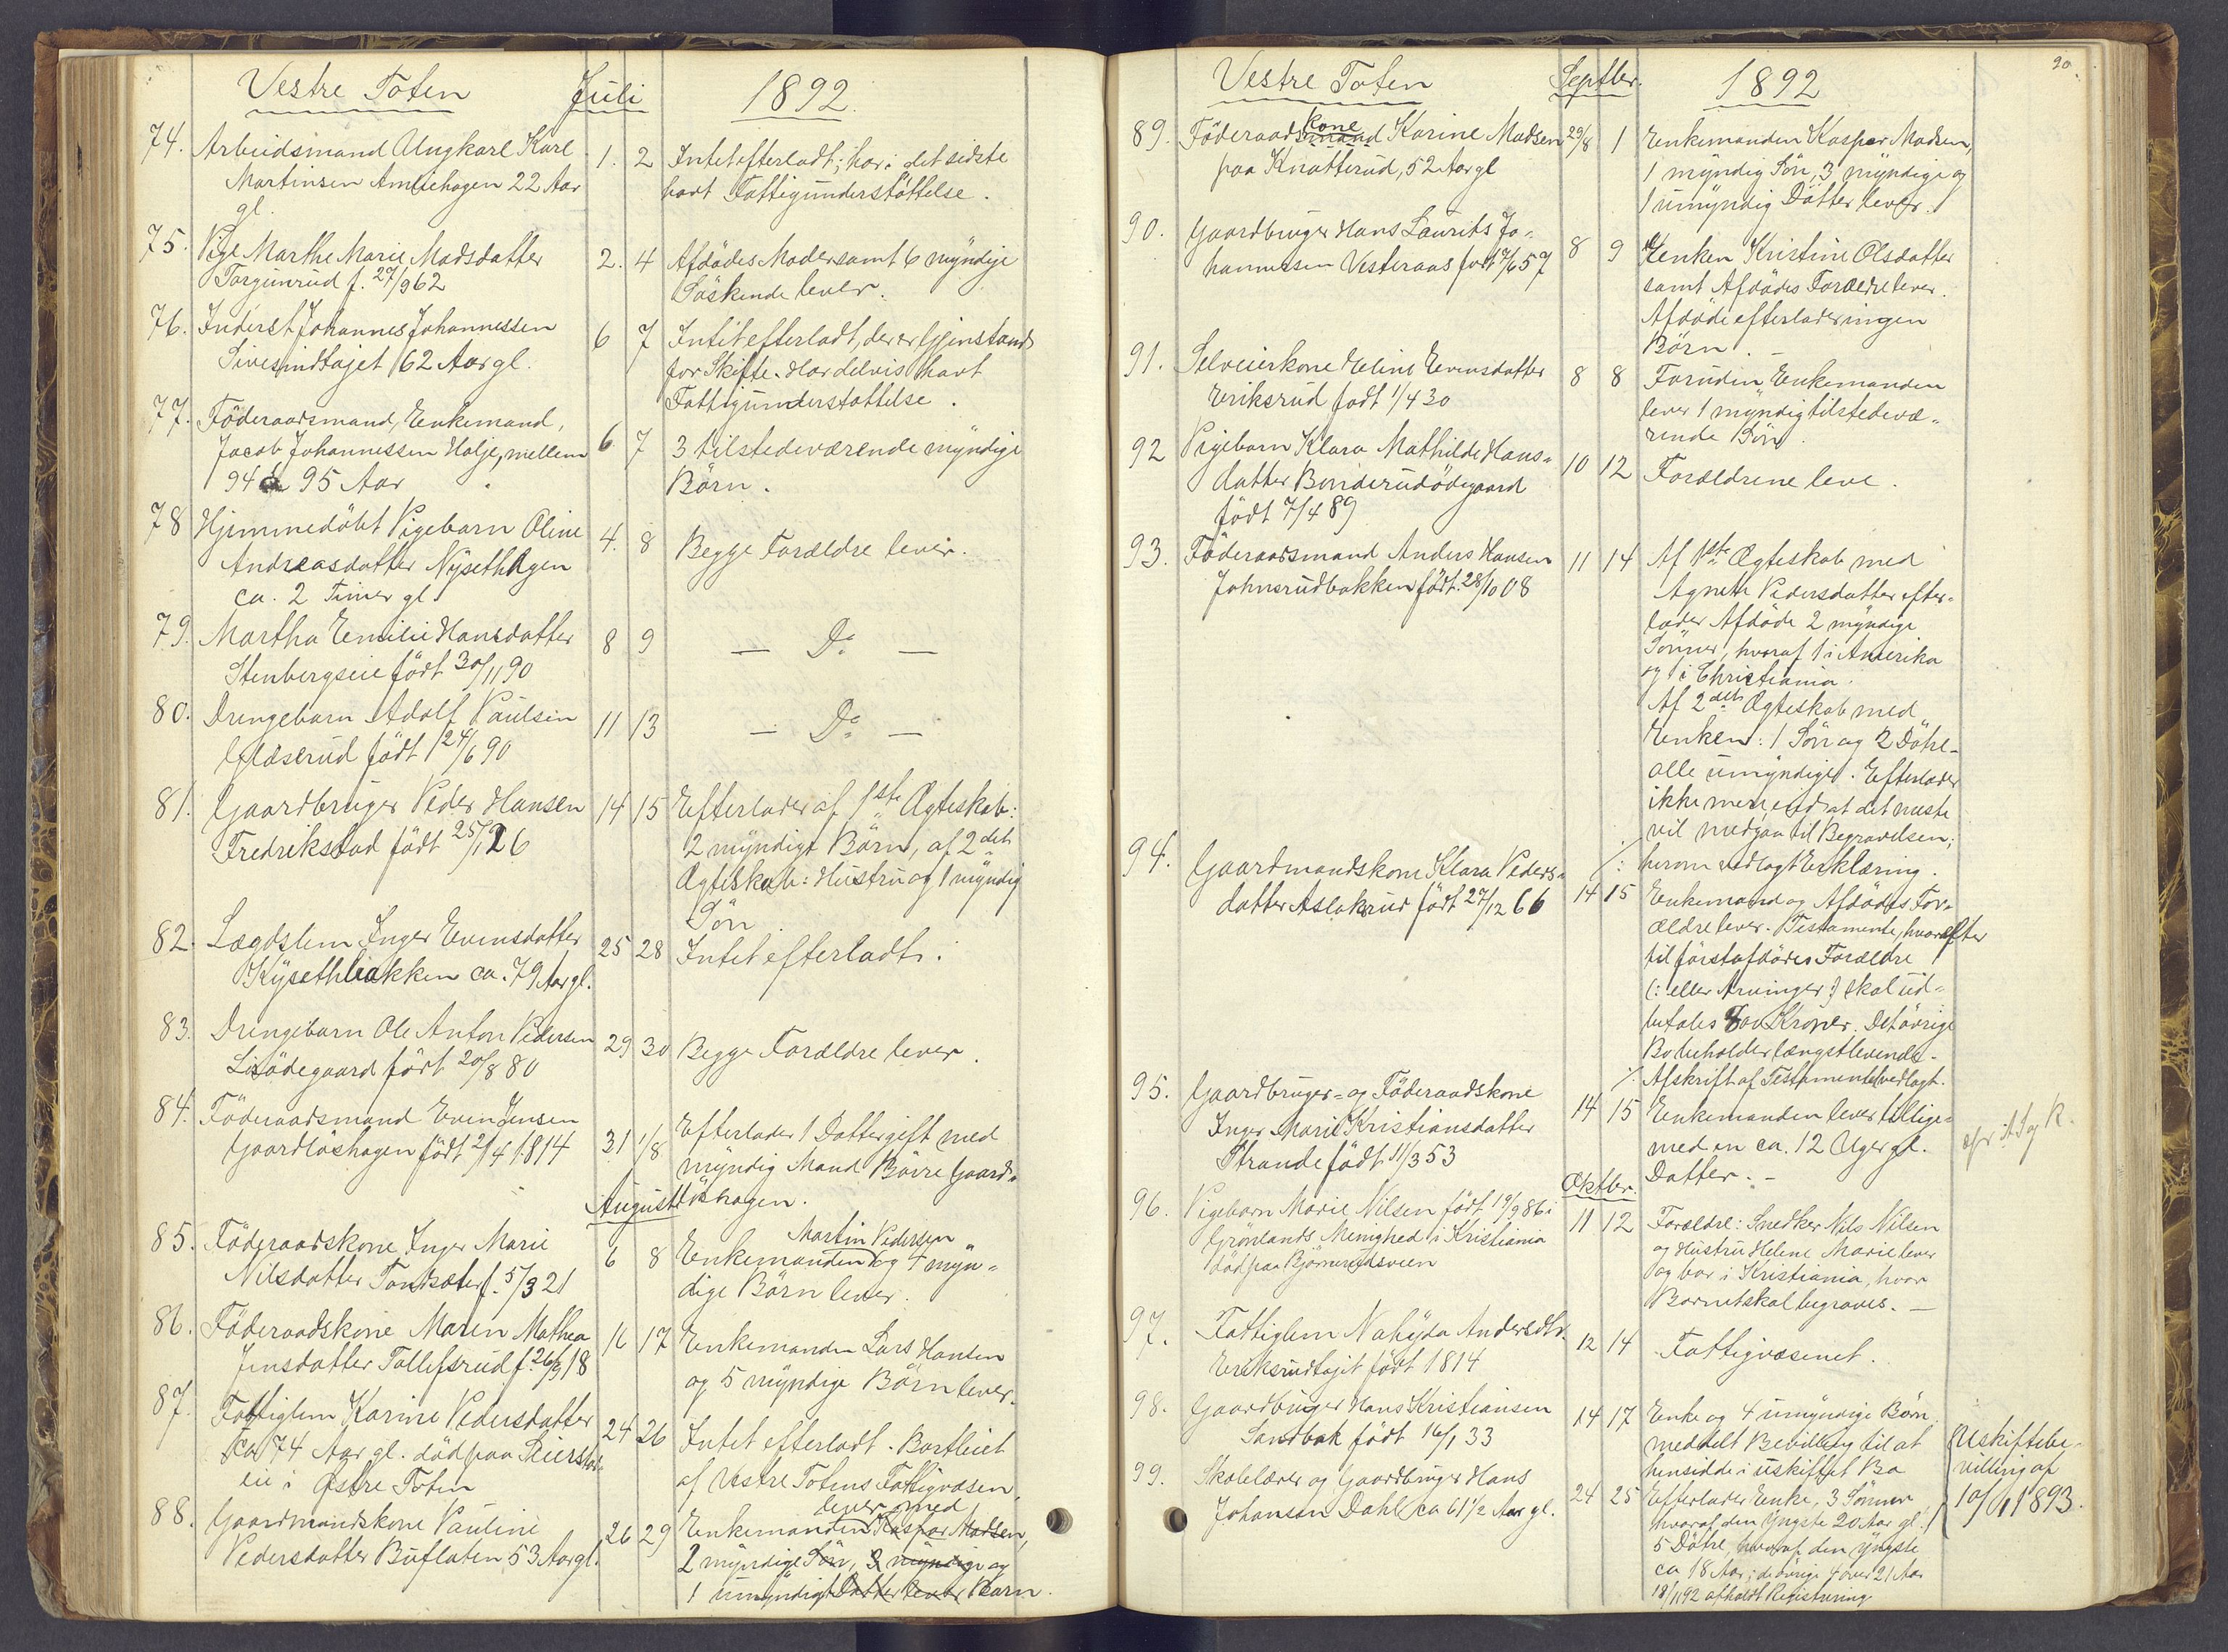 Vestre Toten Juli 1892.
74. Arbeidsmand Ungkarl Karl 1. 2 Intet efterladt; har i det sidste
Martinsen Amliehagen 22 Aar havt Fattigunderstöttelse.
gl.
75. Pige Marthe Marie Madsdatter 2. 4 Afdödes Moder samt 6 myndige
Torgunrud f. 27/9 62 Söskende lever.
76. Inderst Johannes Johannessen 6 7 Intet efterladt, der er Gjenstand
62 Aar gl. for Skifte. Har delvis havt
Fattigunderstøttelse.
77. Föderaadsmand, Enkemand, 6 7 3 tilstedeværende myndige
Jacob Johannessen Holje, mellem Börn.
94 a 95 Aar
78 Hjemmedöbt Pigebarn Oline 4. 8 Begge Forældre lever.
Andreasdatter Nysethagen
ca. 2 Timer gl.
79. Martha Emilie Hansdatter 8 9 — Do —
Stenbergseie födt 30/11 90
80. Drengebarn Adolf Paulsen 11 13 — Do —
Glæserud födt 24/6 90
81. Gaardbruger Peder Hansen 14 15 Efterlader af 1ste Ægteskab:
Fredrikstad födt 25/12 6 2 myndige Börn, af 2det
Ægteskab: Hustru og 1 myndig
Sön
82. Lægdslem Inger Evensdatter 25 28 Intet efterladt.
Kysethbakken ca. 79 Aar gl.
83. Drengebarn Ole Anton Pedersen 29 30 Begge Forældre lever.
Lisödegaard födt 20/8 80
84. Föderaadsmand Even Jensen 31 1/8 Efterlader 1 Datter gift med
Gaardlöshagen födt 2/4 1814 myndig Mand Börre Gaard-
August löshagen.
85. Föderaadskone Inger Marie Martin Pedersen
Nilsdatter f. 5/3 21 6 8 Enkemanden og 4 myn-
dige Börn lever.
86. Föderaadskone Maren Mathea 16 17 Enkemanden Lars Hansen
Jensdatter Tollefsrud f. 26/9 18 og 5 myndige Börn lever.
87. Fattiglem Karine Pedersdatter 24 26 Intet efterladt. Bortleiet
ca 74 Aar gl. död paa
eie i Østre Toten af Vestre Totens Fattigvæsen
88. Gaardmandskone Pauline lever med
Pedersdatter Buflaten, 53 Aar gl. 26 29 Enkemanden Kaspar Madsen,
2 myndige Sön, 3 myndige og
1 umyndigt Datter lever Barn.
20.
Vestre Toten Septbr. 1892
89. Föderaadsmand kone Karine Madsen 29/8 1 Enkemanden Kasper Madsen,
paa Knatterud, 52 Aar gl 1 myndig Sön, 3 myndige og
1 umyndig Datter lever.
90. Gaardbruger Hans Laurits Jo- 8 9 Enken Kristine Olsdatter
hannessen Vesteraas födt 7/6 57 samt Afdödes Forældre lever.
Afdöde efterlader ingen
Börn. –
91. Selveierkone Eline Evensdatter 8 8 Foruden Enkemanden
Eriksrud født 1/4 30 lever 1 myndig tilstedevæ-
rende Sön.
92 Pigebarn Klara Mathilde Hans- 10 12 Forældrene leve.
datter Bonderudödegaard
födt 7/4 89
93. Föderaadsmand Anders Hansen 11 14 Af 1ste Ægteskab med
Johnsrudbakken födt 28/10 08 Agnethe Pedersdatter efter-
lader Afdöde 2 myndige
Sönner, hvoraf 1 i Amerika
og 1 i Christiania.
Af 2det Ægteskab med
Enken: 1 Sön og 2 Dötre -
alle umyndige. Efterlader
ikke mere end at det meste
vil medgaa til Begravelsen;
herom vedlagt Erklæring.
94. Gaardmandskone Klara Peders- 14 15 Enkemand og Afdödes For-
datter Aslakrud födt 27/12 66 ældre lever. Testamente, hvorefter
til förstafdödes Forældre
(: eller Arvinger :) skal ud-
betales 800 Kroner. Det övrige
Bo beholder længstlevende.
Afskrift af Testamentet vedlagt.
95. Gaardbruger- og Föderaadskone 14 15 Enkemanden lever tillige-
Inger Marie Kristiansdatter med en ca. 12 Uger gl.
Strande födt 11/3 53 Datter. –
Oktbr.
96. Pigebarn Marie Nilsen födt 19/9 86 i 11 12 Forældre: Snedker Nils Nilsen
Grönlands Menighed i Kristiania og Hustru Helene Marie lever
död paa og bor i Kristiania, hvor
Barnet skal begraves. —
97. Fattiglem Andersdtr. 12 14 Fattigvæsenet.
Eriksrudhöjet födt 1814
98. Gaardbruger Hans Kristiansen 14 17 Enke og 4 umyndige Börn.
Sandbak födt 16/1 33 meddelt Bevilling til at
hensidde i uskiftet Bo
Uskiftebe-
villing af
10/1 1893.
99. Skolelærer og Gaardbruger Hans 24 25 Efterlader Enke, 3 Sönner
Johansen Dahl ca 61 1/2 Aar gl. hvoraf den yngste 20 Aar gl.
5 Dötre, hvoraf den yngste
ca 18 Aar; de övrige 4 over 21 Aar
18/11 92 afholdt Registrering